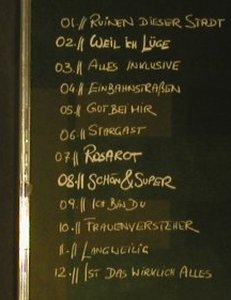 01.// RUINEN DIESER STADT
02.// WEIL ICH LÜGE
03.// ALLES INKLUSIVE
04.// EINBAHNSTRAßEN
05.// GUT BEI MIR
06.// STARGAST
07.// ROSAROT
08.// SCHÖN & SUPER
09.// ICH BIN DU
10.// FRAUENVERSTEHER
11.// LANGWEILIG
12.// IST DAS WIRKLICH ALLES